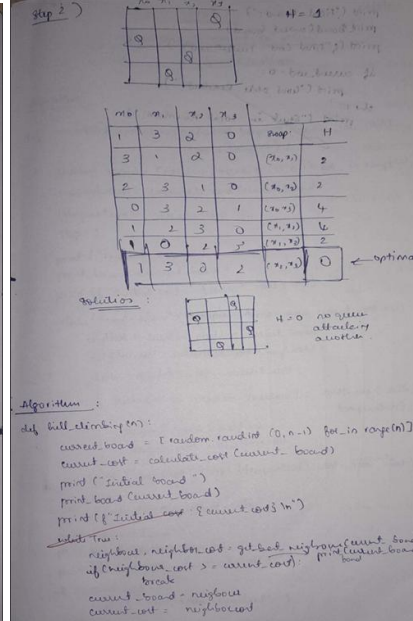 Step 2)
x0 x1 x2 x3
Q
Q
Q
Q
H = 1
x0 x1 x2 x3
1 3 2 0 swap H
3 1 2 0 (x0, x1) 2
2 3 1 0 (x0, x2) 2
0 3 2 1 (x0, x3) 4
1 2 3 0 (x1, x2) 4
1 0 2 3 (x1, x3) 2
1 3 0 2 (x2, x3) 0 ← optima
Solution :
Q
Q
Q
Q
H = 0 no queen
attacking
another.
Algorithm :
def hill_climbing(n):
current_board = [random.randint (0, n-1) for _ in range(n)]
current_cost = calculate_cost (current_board)
print ("Initial board")
print_board (current_board)
print (f "Initial cost : {current_cost} \n")
while True:
neighbour, neighbor_cost = get_best_neighbour(current_board
if (neighbour_cost >= current_cost): print(current_board
break
current_board = neighbour
current_cost = neighbor_cost